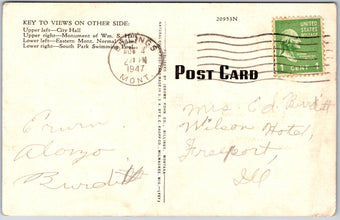 KEY TO VIEWS ON OTHER SIDE:
Upper left—City Hall
Upper right—Monument of Wm. S.
Lower left—Eastern Mont. Normal
Lower right—South Park Swimming Pool
20955N
BILLINGS
1947
MONT.
1 CENT 1
POST CARD
Mrs. Ed Burditt
Wilson Hotel,
Freeport,
Ill
Erwin
Alonzo
Burditt